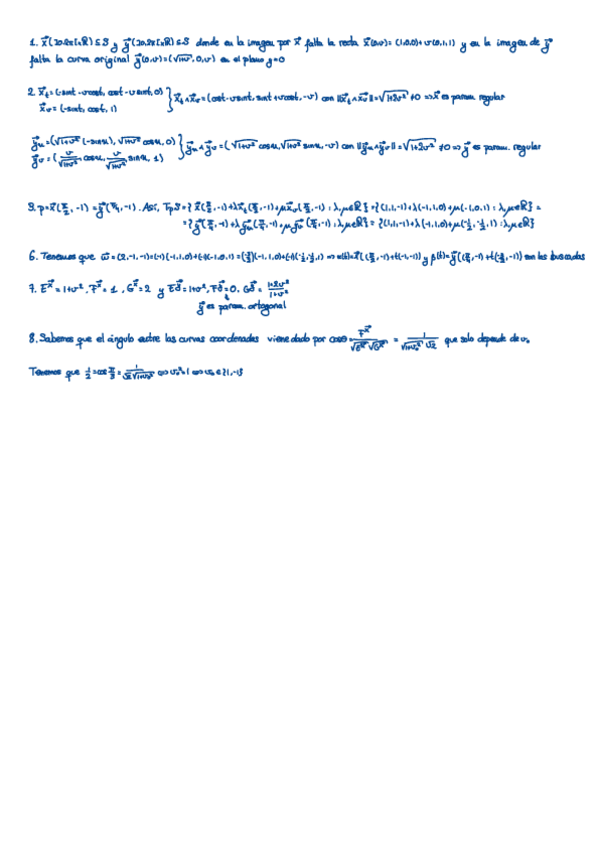 1. x⃗(]0,2π[×R) ⊆ S y y⃗(]0,2π[×R) ⊆ S donde en la imagen por x⃗ falta la recta x⃗(0,v)=(1,0,0)+v(0,1,1) y en la imagen de y⃗
falta la curva original y⃗(0,v)=(√1+v², 0, v) en el plano y=0
2. x⃗t=(-sint-vcost, cost-vsint, 0)
x⃗v=(-sint, cost, 1) } x⃗t∧x⃗v=(cost-vsint, sint+vcost, -v) con ||x⃗t∧x⃗v||=√1+2v² ≠0 ⇒ x⃗ es param. regular
y⃗u=(√1+v² (-sinu), √1+v² cosu, 0)
y⃗v=(v/√1+v² cosu, v/√1+v² sinu, 1) } y⃗u∧y⃗v=(√1+v² cosu, √1+v² sinu, -v) con ||y⃗u∧y⃗v||=√1+2v² ≠0 ⇒ y⃗ es param. regular
p=x⃗(π/2, -1)=y⃗(π/4, -1). Así, TpS={x⃗(π/2, -1)+λx⃗t(π/2, -1)+μx⃗v(π/2, -1) : λ,μ∈R}={(1,1,-1)+λ(-1,1,0)+μ(-1,0,1) : λ,μ∈R}=
={y⃗(π/4, -1)+λy⃗u(π/4, -1)+μy⃗v(π/4, -1) : λ,μ∈R}={(1,1,-1)+λ(-1,1,0)+μ(-1/2, -1/2, 1) : λ,μ∈R}
6. Tenemos que w⃗=(2,-1,-1)=(-1)(-1,1,0)+(-1)(-1,0,1)=(-3/2)(-1,1,0)+(-1)(-1/2,-1/2,1) ⇒ α(t)=x⃗((π/2, -1)+t(-1,-1)) y β(t)=y⃗((π/4, -1)+t(-3/2, -1)) son las buscadas
7. E^x⃗=1+v², F^x⃗=1, G^x⃗=2 y E^y⃗=1+v², F^y⃗=0, G^y⃗=1+2v²/1+v²
y⃗ es param. ortogonal
8. Sabemos que el ángulo entre las curvas coordenadas viene dado por cosθ=F^x⃗/√E^x⃗ √G^x⃗ = 1/√1+v₀² √2 que solo depende de v₀
Tenemos que 1/2=cos π/3=1/√2 √1+v₀² ⇔ v₀²=1 ⇔ v₀∈{1,-1}